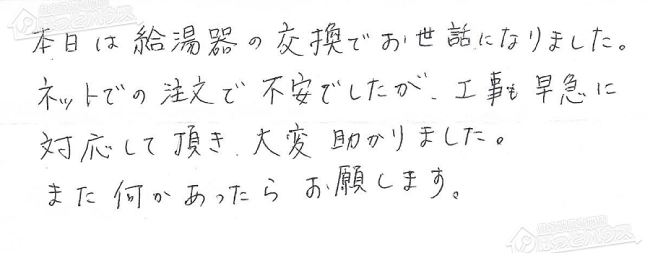 本日は給湯器の交換でお世話になりました。
ネットでの注文で不安でしたが、工事も早急に
対応して頂き、大変助かりました。
また何かあったらお願します。